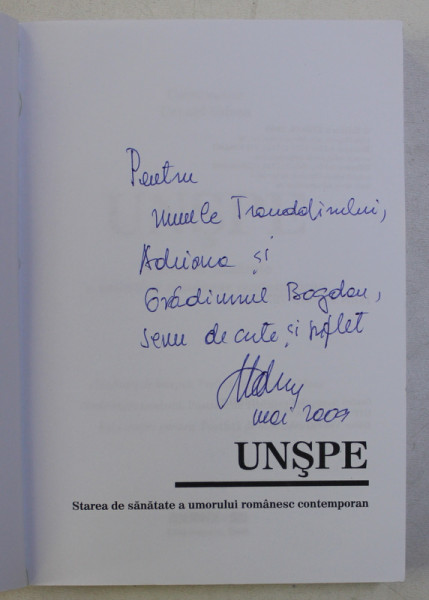 Pentru
numele Trandafirului,
Adriana și
Grădinarul Bogdan,
semn de carte și suflet
mai 2009
UNŞPE
Starea de sănătate a umorului românesc contemporan